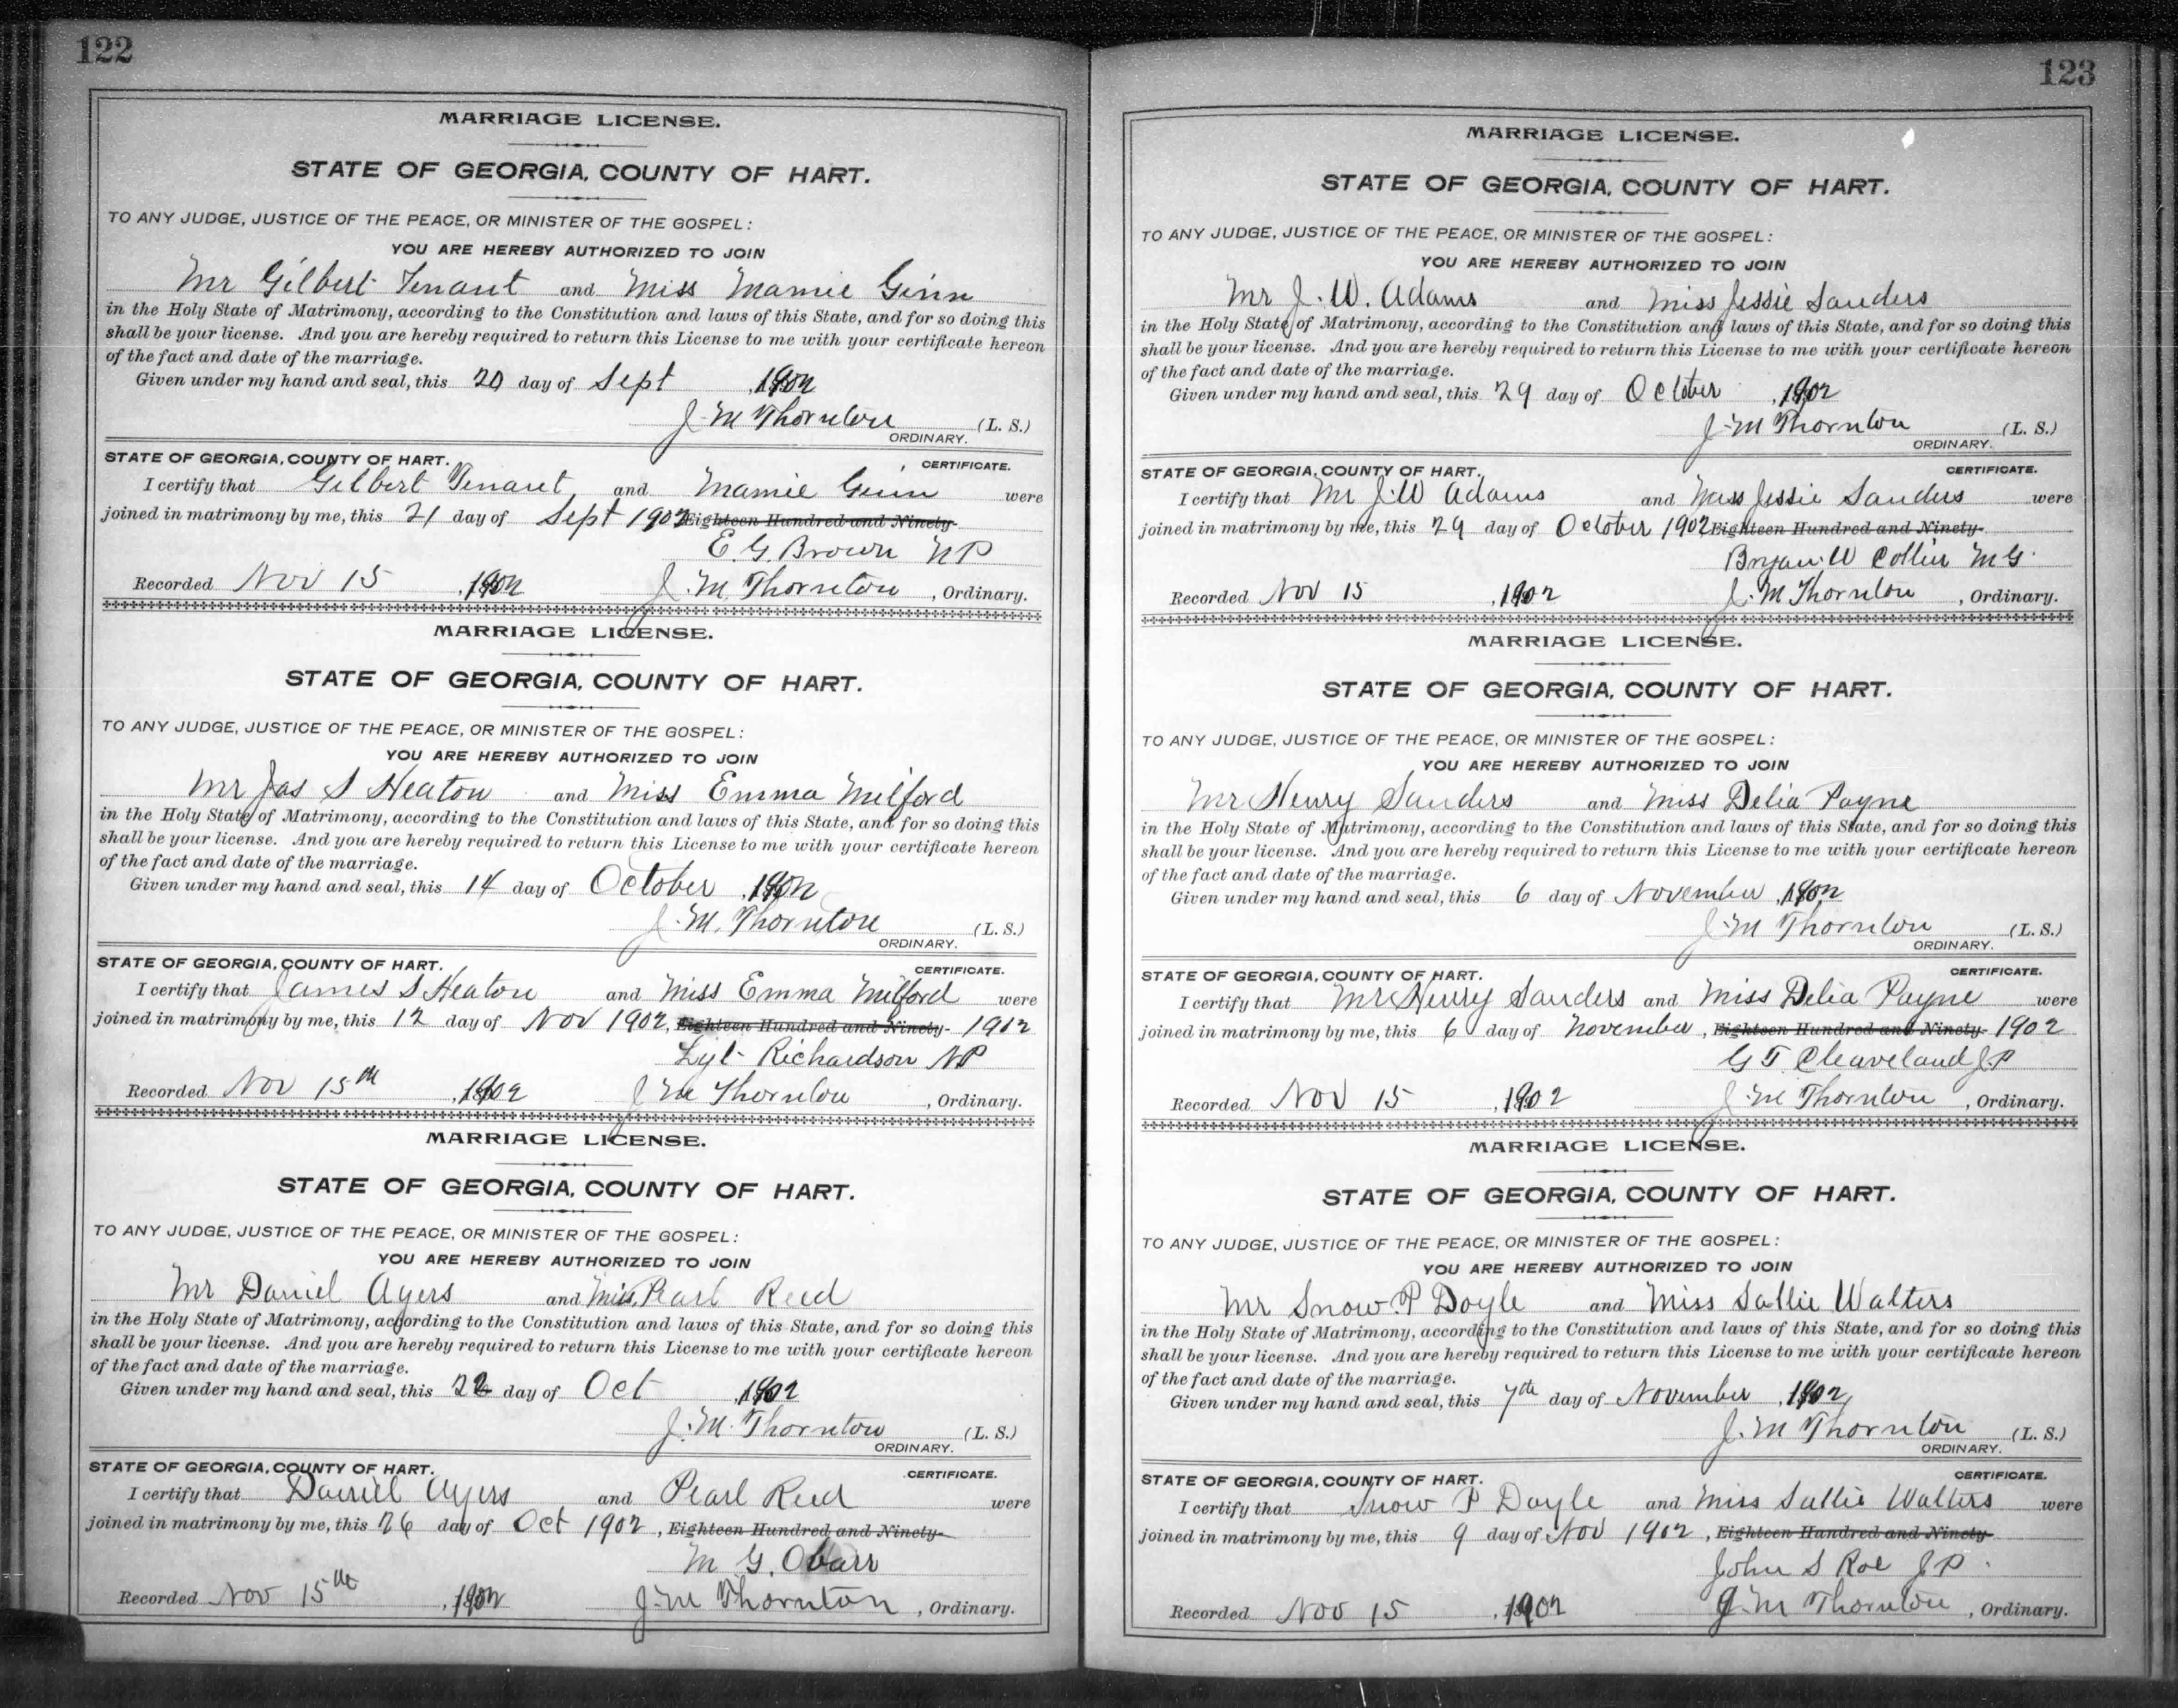 122
MARRIAGE LICENSE.
STATE OF GEORGIA, COUNTY OF HART.
TO ANY JUDGE, JUSTICE OF THE PEACE, OR MINISTER OF THE GOSPEL:
YOU ARE HEREBY AUTHORIZED TO JOIN
Mr Gilbert Tenant and Miss Mamie Ginn
in the Holy State of Matrimony, according to the Constitution and laws of this State, and for so doing this
shall be your license. And you are hereby required to return this License to me with your certificate hereon
of the fact and date of the marriage.
Given under my hand and seal, this 20 day of Sept , 1902
J. M Thornton (L. S.)
ORDINARY.
STATE OF GEORGIA, COUNTY OF HART. CERTIFICATE.
I certify that Gilbert Tenant and Mamie Ginn were
joined in matrimony by me, this 21 day of Sept 1902 Eighteen Hundred and Ninety-
E. G. Brown NP
Recorded Nov 15 , 1902 J. M. Thornton , Ordinary.
MARRIAGE LICENSE.
STATE OF GEORGIA, COUNTY OF HART.
TO ANY JUDGE, JUSTICE OF THE PEACE, OR MINISTER OF THE GOSPEL:
YOU ARE HEREBY AUTHORIZED TO JOIN
Mr Jas S Heaton and Miss Emma Milford
in the Holy State of Matrimony, according to the Constitution and laws of this State, and for so doing this
shall be your license. And you are hereby required to return this License to me with your certificate hereon
of the fact and date of the marriage.
Given under my hand and seal, this 14 day of October , 1902
J. M. Thornton (L. S.)
ORDINARY.
STATE OF GEORGIA, COUNTY OF HART. CERTIFICATE.
I certify that James S Heaton and Miss Emma Milford were
joined in matrimony by me, this 12 day of Nov 1902, Eighteen Hundred and Ninety- 1902
Richardson NP
Recorded Nov 15th , 1902 J M Thornton , Ordinary.
MARRIAGE LICENSE.
STATE OF GEORGIA, COUNTY OF HART.
TO ANY JUDGE, JUSTICE OF THE PEACE, OR MINISTER OF THE GOSPEL:
YOU ARE HEREBY AUTHORIZED TO JOIN
Mr Daniel Ayers and Miss Pearl Reed
in the Holy State of Matrimony, according to the Constitution and laws of this State, and for so doing this
shall be your license. And you are hereby required to return this License to me with your certificate hereon
of the fact and date of the marriage.
Given under my hand and seal, this 22 day of Oct , 1902
J. M. Thornton (L. S.)
ORDINARY.
STATE OF GEORGIA, COUNTY OF HART. CERTIFICATE.
I certify that Daniel Ayers and Pearl Reed were
joined in matrimony by me, this 26 day of Oct 1902 , Eighteen Hundred and Ninety-
M G. Obarr
Recorded Nov 15th , 1902 J. M Thornton , Ordinary.
123
MARRIAGE LICENSE.
STATE OF GEORGIA, COUNTY OF HART.
TO ANY JUDGE, JUSTICE OF THE PEACE, OR MINISTER OF THE GOSPEL:
YOU ARE HEREBY AUTHORIZED TO JOIN
Mr J. W. Adams and Miss Jessie Sanders
in the Holy State of Matrimony, according to the Constitution and laws of this State, and for so doing this
shall be your license. And you are hereby required to return this License to me with your certificate hereon
of the fact and date of the marriage.
Given under my hand and seal, this 29 day of October , 1902
J. M Thornton (L. S.)
ORDINARY.
STATE OF GEORGIA, COUNTY OF HART. CERTIFICATE.
I certify that Mr J. W Adams and Miss Jessie Sanders were
joined in matrimony by me, this 29 day of October 1902 Eighteen Hundred and Ninety-
Bryan W Collier M G.
Recorded Nov 15 , 1902 J. M Thornton , Ordinary.
MARRIAGE LICENSE.
STATE OF GEORGIA, COUNTY OF HART.
TO ANY JUDGE, JUSTICE OF THE PEACE, OR MINISTER OF THE GOSPEL:
YOU ARE HEREBY AUTHORIZED TO JOIN
Mr Henry Sanders and Miss Delia Payne
in the Holy State of Matrimony, according to the Constitution and laws of this State, and for so doing this
shall be your license. And you are hereby required to return this License to me with your certificate hereon
of the fact and date of the marriage.
Given under my hand and seal, this 6 day of November , 1902
J. M Thornton (L. S.)
ORDINARY.
STATE OF GEORGIA, COUNTY OF HART. CERTIFICATE.
I certify that Mr Henry Sanders and Miss Delia Payne were
joined in matrimony by me, this 6 day of November , Eighteen Hundred and Ninety- 1902
G T. Cleaveland J P
Recorded Nov 15 , 1902 J. M Thornton , Ordinary.
MARRIAGE LICENSE.
STATE OF GEORGIA, COUNTY OF HART.
TO ANY JUDGE, JUSTICE OF THE PEACE, OR MINISTER OF THE GOSPEL:
YOU ARE HEREBY AUTHORIZED TO JOIN
Mr Snow. P Doyle and Miss Sallie Walters
in the Holy State of Matrimony, according to the Constitution and laws of this State, and for so doing this
shall be your license. And you are hereby required to return this License to me with your certificate hereon
of the fact and date of the marriage.
Given under my hand and seal, this 7th day of November , 1902
J. M Thornton (L. S.)
ORDINARY.
STATE OF GEORGIA, COUNTY OF HART. CERTIFICATE.
I certify that Snow P Doyle and Miss Sallie Walters were
joined in matrimony by me, this 9 day of Nov 1902 , Eighteen Hundred and Ninety-
John S Roe J P.
Recorded Nov 15 , 1902 J. M Thornton , Ordinary.